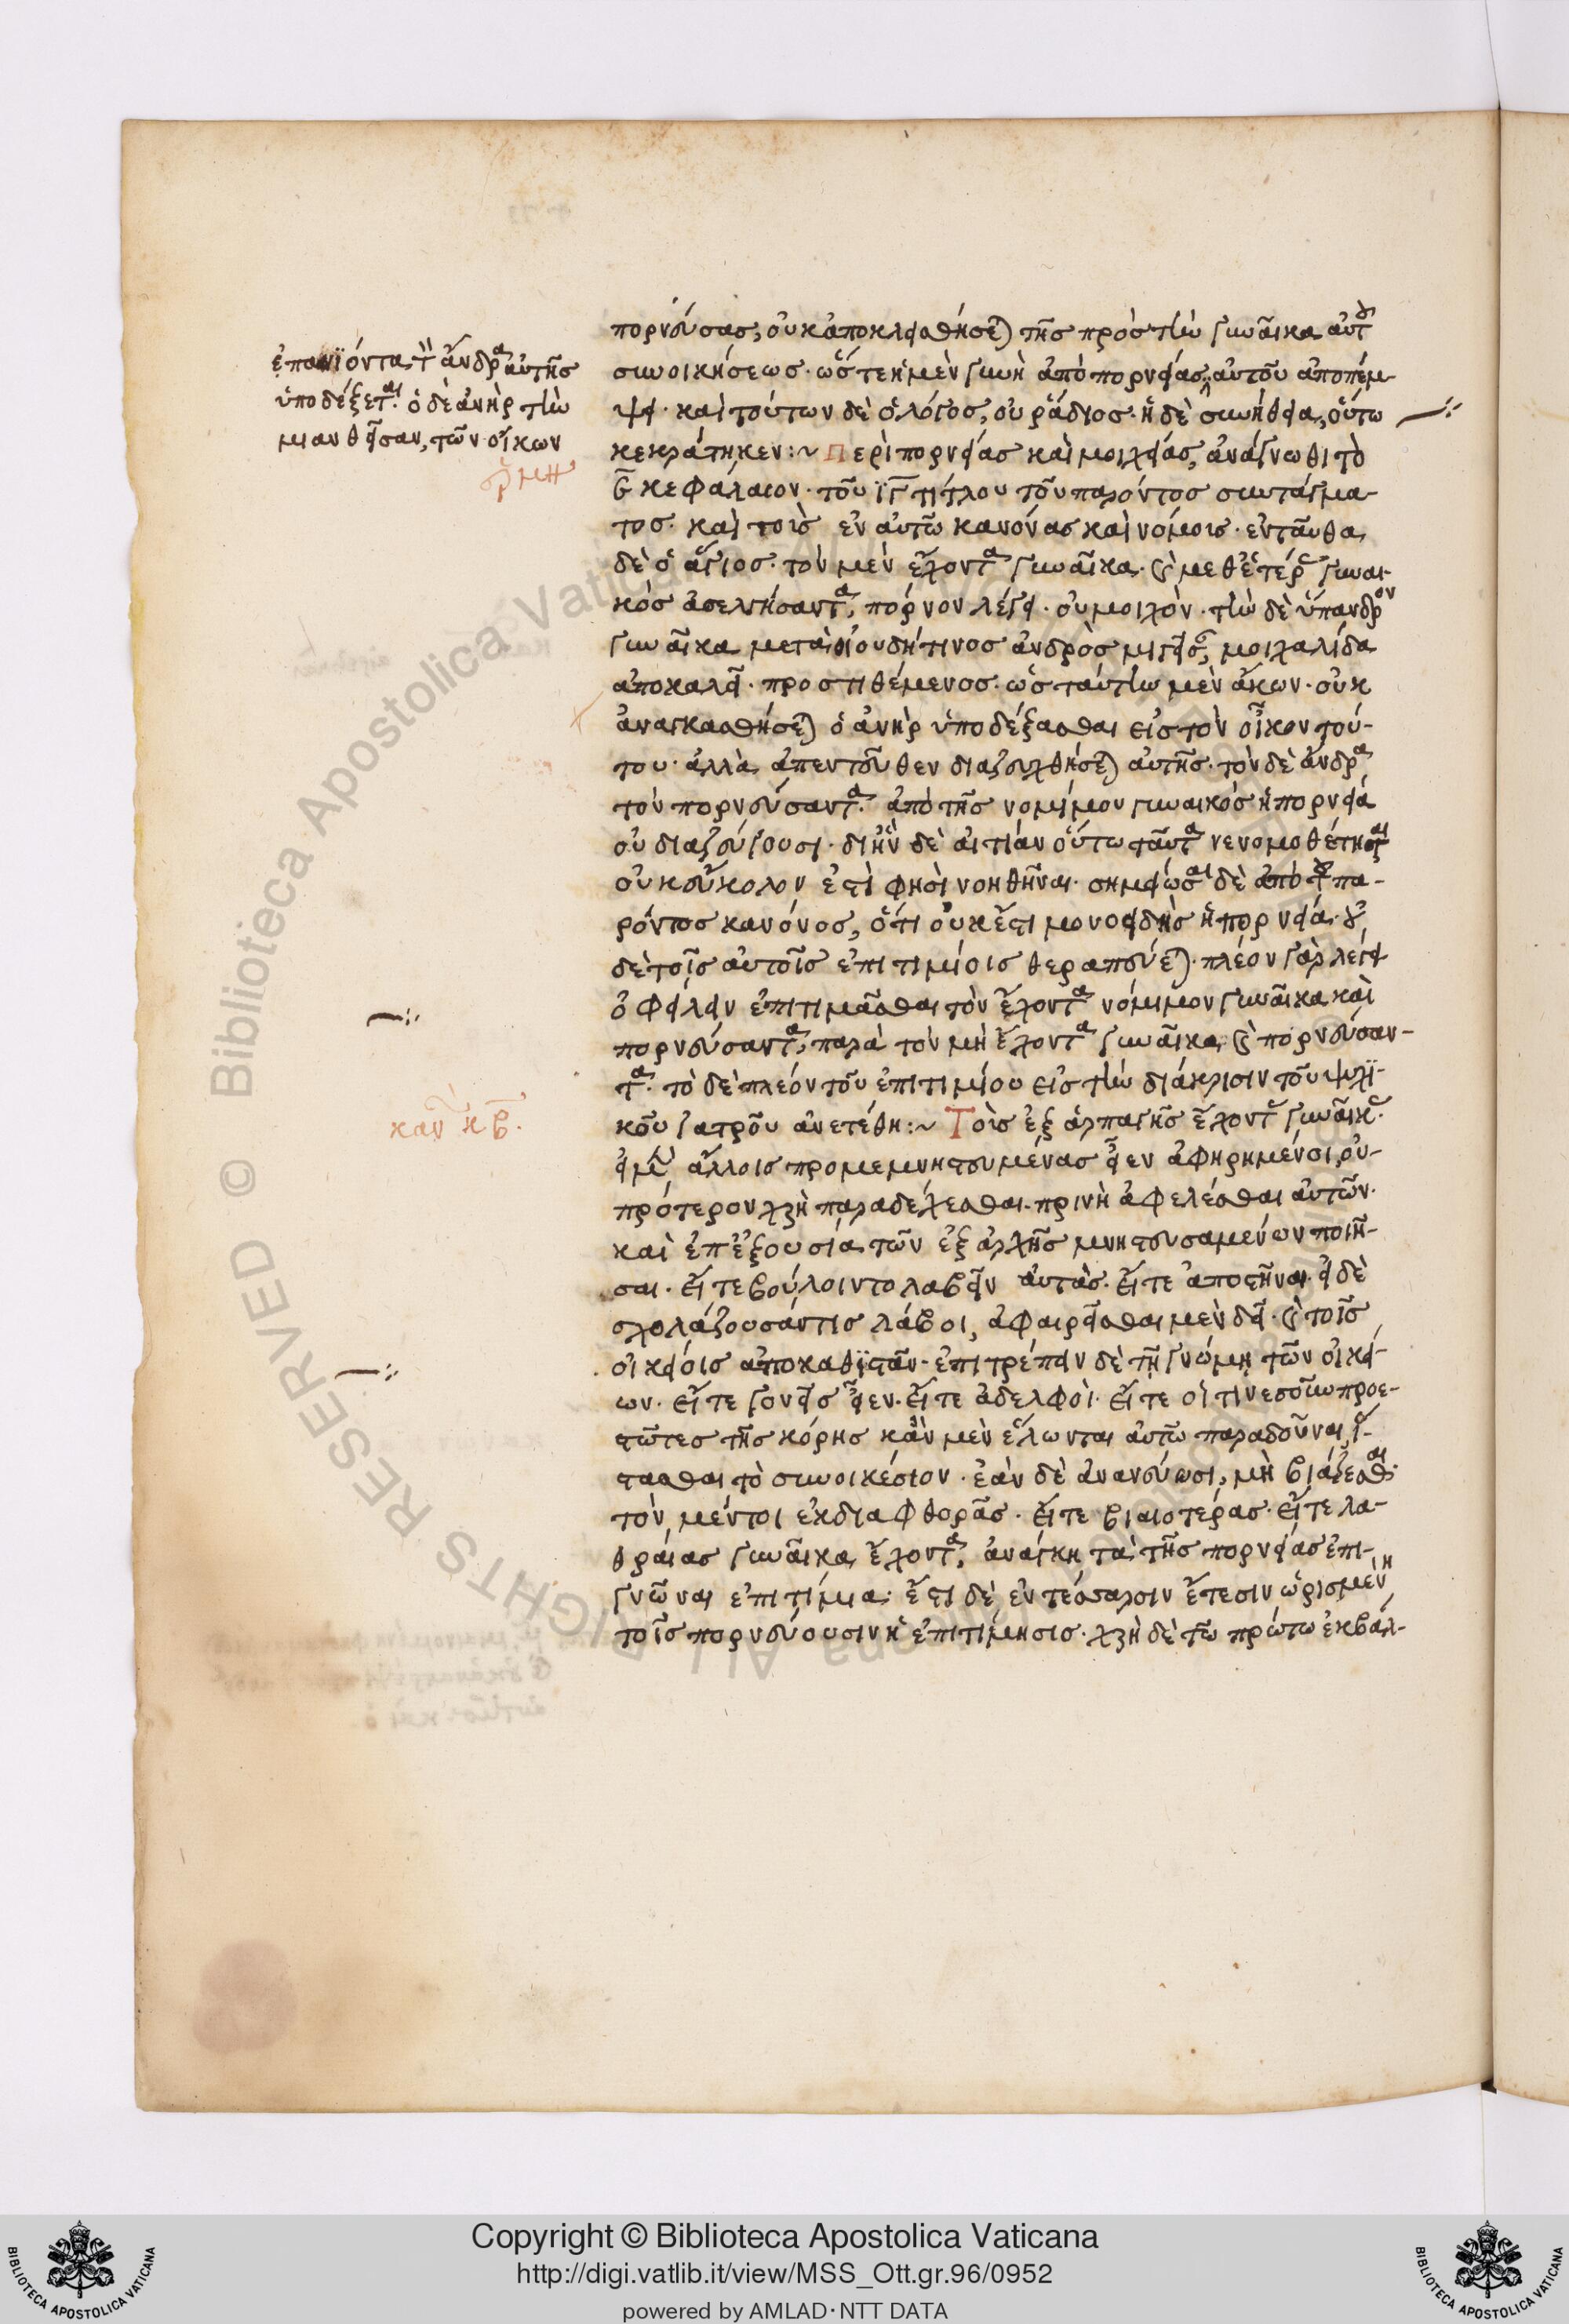 ἐπανϊόντα τὸν ἄνδρα αὐτῆς
ὑποδέξεται· ὁ δὲ ἀνὴρ τὴν
μιανθεῖσαν, τῶν οἴκων
πορνεύσας, οὐκ ἀποκλεισθήσεται τῆς πρὸς τὴν γυναῖκα αὐτοῦ
συνοικήσεως· ὥστε ἡ μὲν γυνὴ ἀπὸ πορνείας αὐτοῦ ἀποπέμ-
ψει· καὶ τούτων δὲ ὁ λόγος, οὐ ῥάδιος· ἡ δὲ συνήθεια, οὕτω
κεκράτηκεν:~ Περὶ πορνείας καὶ μοιχείας, ἀνάγνωθι τὸ
κεφάλαιον· τοῦ ιγ τίτλου τοῦ παρόντος συντάγμα-
τος· καὶ τοὺς ἐν αὐτῶ κανόνας καὶ νόμοις· ἐνταῦθα
δὲ ὁ ἅγιος· τὸν μὲν ἔχοντα γυναῖκα· καὶ μεθ' ἑτέρας γυναι-
κὸς ἀσελγήσαντα, πόρνον λέγει· οὐ μοιχὸν· τὴν δὲ ὕπανδρον
γυναῖκα μετὰ οἱουδήτινος ἀνδρὸς μιγεῖσαν, μοιχαλίδα
ἀποκαλεῖ· προστιθέμενος· ὡς ταύτην μὲν ἄκων· οὐκ
ἀναγκασθήσεται ὁ ἀνὴρ ὑποδέξασθαι εἰς τὸν οἶκον τού-
του· ἀλλὰ ἀπεντεῦθεν διαζευχθήσεται αὐτῆς· τὸν δὲ ἄνδρα
τὸν πορνεύσαντα· ἀπὸ τῆς νομίμου γυναικὸς ἡ πορνεία
οὐ διαζεύγουσι· δι' ἣν δὲ αἰτίαν οὕτω ταῦτα νενομοθέτηται
οὐκ εὔκολον ἐστὶ φησὶ νοηθῆναι· σημείωσαι δὲ ἀπὸ τοῦ πα-
ρόντος κανόνος, ὅτι οὐκ ἔστι μονοειδὴς ἡ πορνεία· οὐ
δὲ τοῖς αὐτοῖς ἐπιτιμίοις θεραπεύεται· πλέον γὰρ λέγει
ὀφείλειν ἐπιτιμᾶσθαι τὸν ἔχοντα νόμιμον γυναῖκα καὶ
πορνεύσαντα, παρὰ τὸν μὴ ἔχοντα γυναῖκα καὶ πορνεύσαν-
τα· τὸ δὲ πλέον τοῦ ἐπιτιμίου εἰς τὴν διάκρισιν τοῦ ψυχϊ-
κοῦ ἰατροῦ ἀνετέθη:~ Τοὺς ἐξ ἁρπαγῆς ἔχοντας γυναῖκας·
καν κβ·
εἰ μὲν ἄλλοις προμεμνηστευμένας εἶεν ἀφηρημένοι, οὐ-
πρότερον χρὴ παραδέχεσθαι· πρινὴ ἀφελέσθαι αὐτῶν·
καὶ ἐπ' ἐξουσία τῶν ἐξ ἀρχῆς μνηστευσαμένων ποιῆ-
σαι· εἴτε βούλοιντο λαβεῖν αὐτὰς· εἴτε ἀποστῆναι· εἰ δὲ
σχολάζουσάν τις λάβοι, ἀφαιρεῖσθαι μὲν δεῖ· καὶ τοῖς
οἰκείοις ἀποκαθϊστᾶν· ἐπιτρέπειν δὲ τῇ γνώμῃ τῶν οἰκεί-
ων· εἴτε γονεῖς εἶεν· εἴτε ἀδελφοὶ· εἴτε οἵτινες οὖν προε-
στῶτες τῆς κόρης κἂν μὲν ἕλωνται αὐτῶ παραδοῦναι, ἵ-
στασθαι τὸ συνοικέσιον· ἐὰν δὲ ἀνανεύωσι, μὴ βιάζεσθαι·
τὸν μέντοι ἐκ διαφθορᾶς· εἴτε βιαιοτέρας· εἴτε λα-
θραίας γυναῖκα ἔχοντα, ἀνάγκη τὰ τῆς πορνείας ἐπι-
γνῶναι ἐπιτίμια· ἔστι δὲ ἐν τέσσαρσιν ἔτεσιν ὡρισμένη
τοῖς πορνεύουσιν ἡ ἐπιτίμησις· χρὴ δὲ τῶ πρώτω ἐκβάλ-
Copyright © Biblioteca Apostolica Vaticana
http://digi.vatlib.it/view/MSS_Ott.gr.96/0952
powered by AMLAD·NTT DATA
BIBLIOTECA APOSTOLICA VATICANA
BIBLIOTECA APOSTOLICA VATICANA